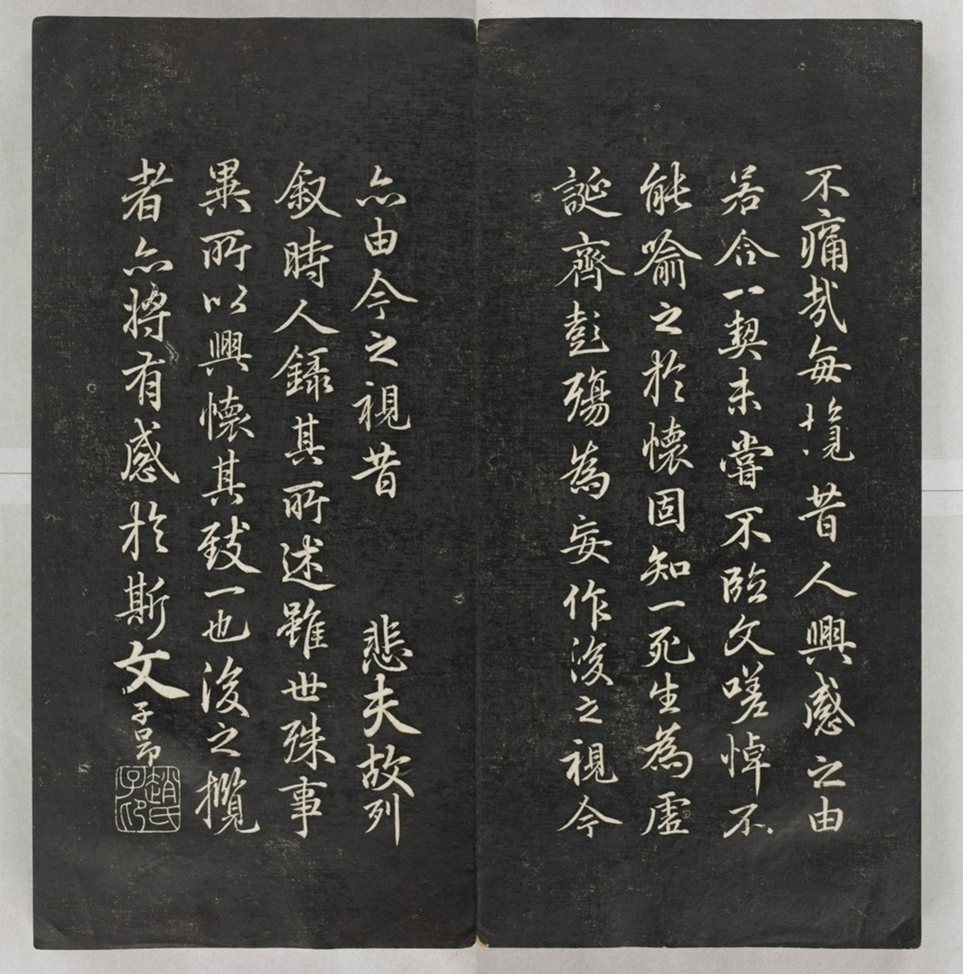 不痛哉每攬昔人興感之由
若合一契未嘗不臨文嗟悼不
能喻之於懷固知一死生為虛
誕齊彭殤為妄作後之視今
亦由今之視昔 悲夫故列
叙時人錄其所述雖世殊事
異所以興懷其致一也後之攬
者亦將有感於斯文
子昂
趙氏子昂